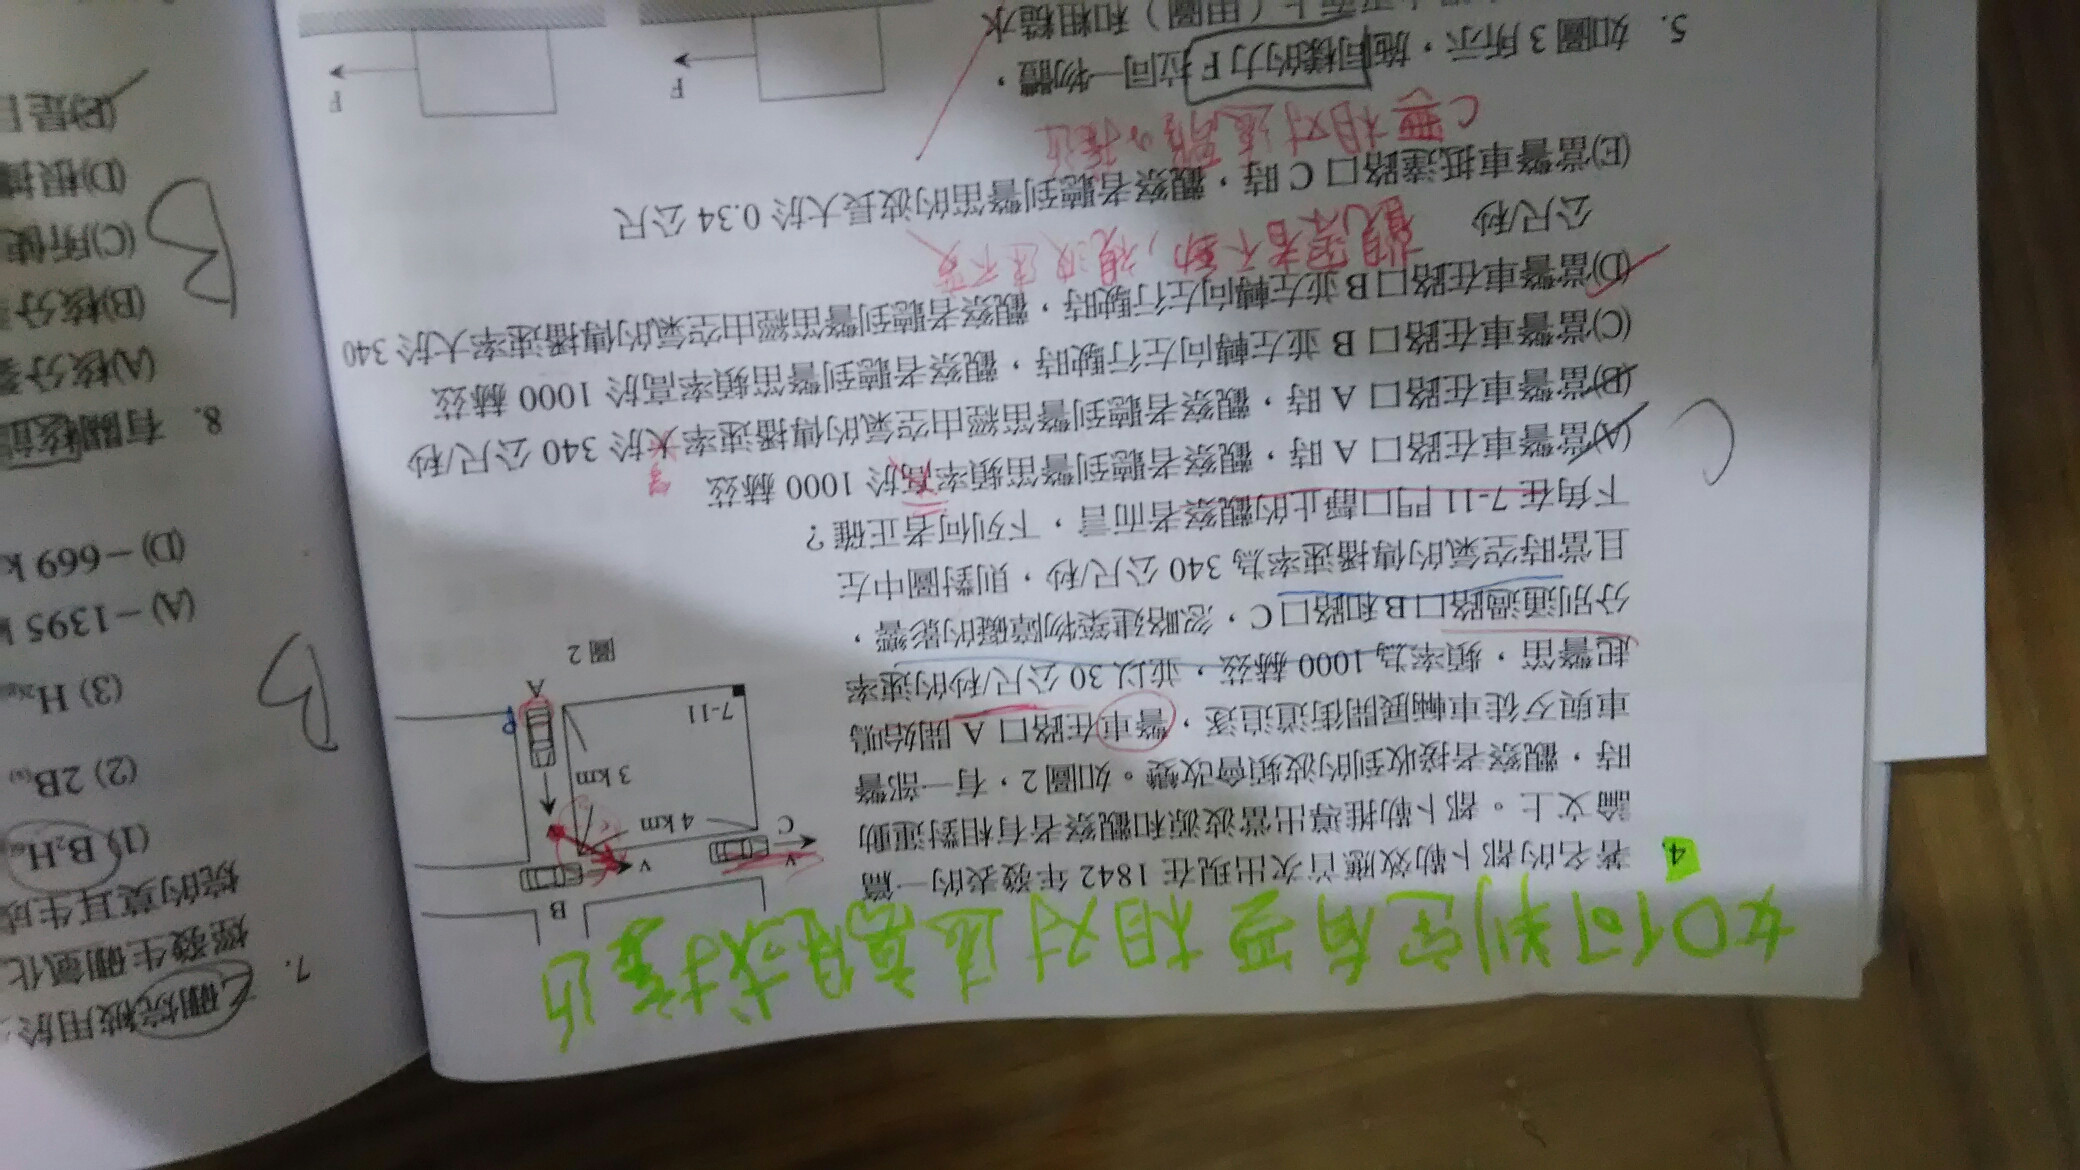 如何判定有要相对远离或接近
4. 著名的都卜勒效應首次出現在 1842 年發表的一篇
論文上。都卜勒推導出當波源和觀察者有相對運動
時，觀察者接收到的波頻會改變。如圖 2，有一部警
車與歹徒車輛展開街道追逐，警車在路口 A 開始鳴
起警笛，頻率為 1000 赫茲，並以 30 公尺/秒的速率
分別通過路口 B 和路口 C，忽略建築物障礙的影響，
且當時空氣的傳播速率為 340 公尺/秒，則對圖中左
下角在 7-11 門口靜止的觀察者而言，下列何者正確？
B
C
v
v
4 km
3 km
7-11
A
圖 2
C
(A)當警車在路口 A 時，觀察者聽到警笛頻率高於 1000 赫茲
(B)當警車在路口 A 時，觀察者聽到警笛經由空氣的傳播速率大於 340 公尺/秒
(C)當警車在路口 B 並左轉向左行駛時，觀察者聽到警笛頻率高於 1000 赫茲
(D)當警車在路口 B 並左轉向左行駛時，觀察者聽到警笛經由空氣的傳播速率大於 340
公尺/秒
觀察者不動，視波速不變
(E)當警車抵達路口 C 時，觀察者聽到警笛的波長大於 0.34 公尺
C要相对远離or接近
5. 如圖 3 所示，施同樣的力 F 拉同一物體，
（甲圖）和粗糙水
F
F
7. 乙硼烷被用於
燒的莫耳生成
(1) B₂H
(2) 2B
(3) H₂
(A) －1395 k
(D) －669 k
B
8. 有關核
(A)核分
(B)核分
(C)所使
(D)根據
(E)是
B